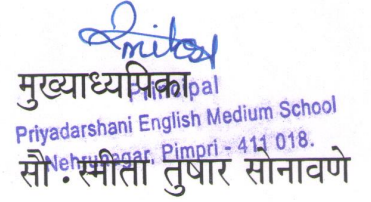 Smita
मुख्याध्यापिका
Principal
Priyadarshani English Medium School
Nehrunagar, Pimpri - 411 018.
सौ. स्मीता तुषार सोनावणे